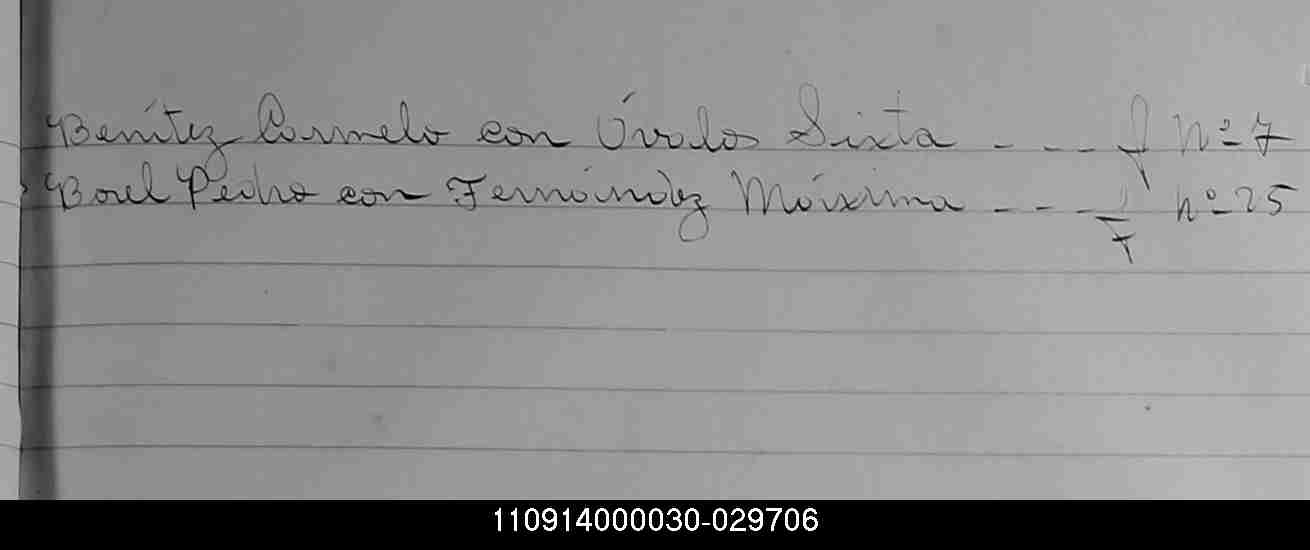 Benítez Carmelo con Ávalos Sixta - - - - f Nº 7
Boel Pedro con Fernández Máxima - - - - f Nº 25
110914000030-029706